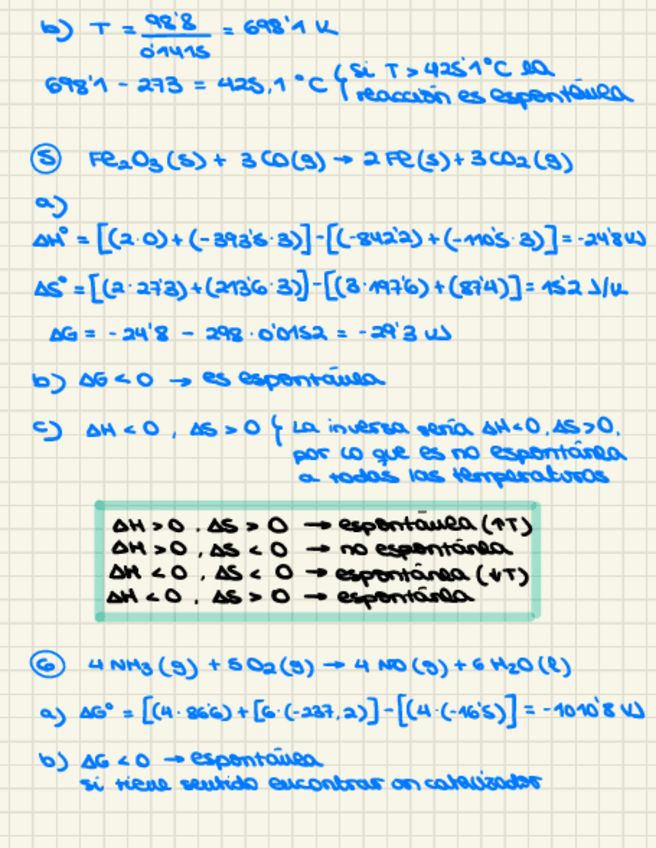 b) T = 98'8 / 0'1415 = 698'1 K
698'1 - 273 = 425,1 °C { si T > 425'1 °C la
reacción es espontánea
⑤ Fe₂O₃(s) + 3CO(g) → 2Fe(s) + 3CO₂(g)
a)
ΔH° = [(2·0) + (-393'5·3)] - [(-842'2) + (-110'5·3)] = -24'8 kJ
ΔS° = [(2·27'3) + (213'6·3)] - [(3·197'6) + (87'4)] = 15'2 J/K
ΔG = -24'8 - 298·0'0152 = -29'3 kJ
b) ΔG < 0 → es espontánea
c) ΔH < 0 , ΔS > 0 { La inversa sería ΔH<0, ΔS>0,
por lo que es no espontánea
a todas las temperaturas
ΔH > 0 . ΔS > 0 → espontánea (↑T)
ΔH > 0 , ΔS < 0 → no espontánea
ΔH < 0 , ΔS < 0 → espontánea (↓T)
ΔH < 0 , ΔS > 0 → espontánea
⑥ 4NH₃(g) + 5O₂(g) → 4NO(g) + 6H₂O(l)
a) ΔG° = [(4·86'6) + [6·(-237,2)] - [(4·(-16'5)] = -1010'8 kJ
b) ΔG < 0 → espontánea
si tiene sentido encontrar un catalizador